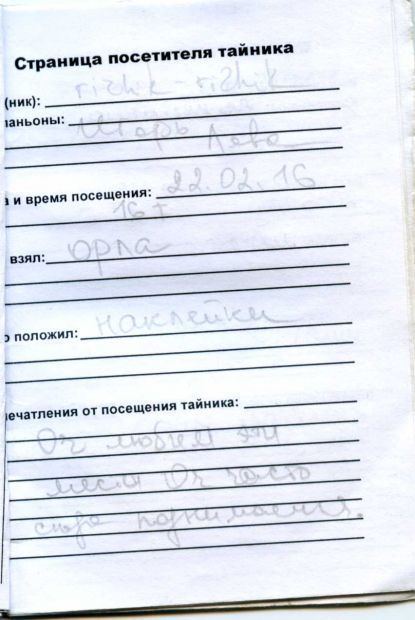 Страница посетителя тайника
(ник): rizhik-rizhik
паньоны: Игорь Лева
а и время посещения: 22.02.16
16
взял: орла
о положил: наклейки
печатления от посещения тайника:
Оч любим эти
места Оч часто
сюда поднимаемся.